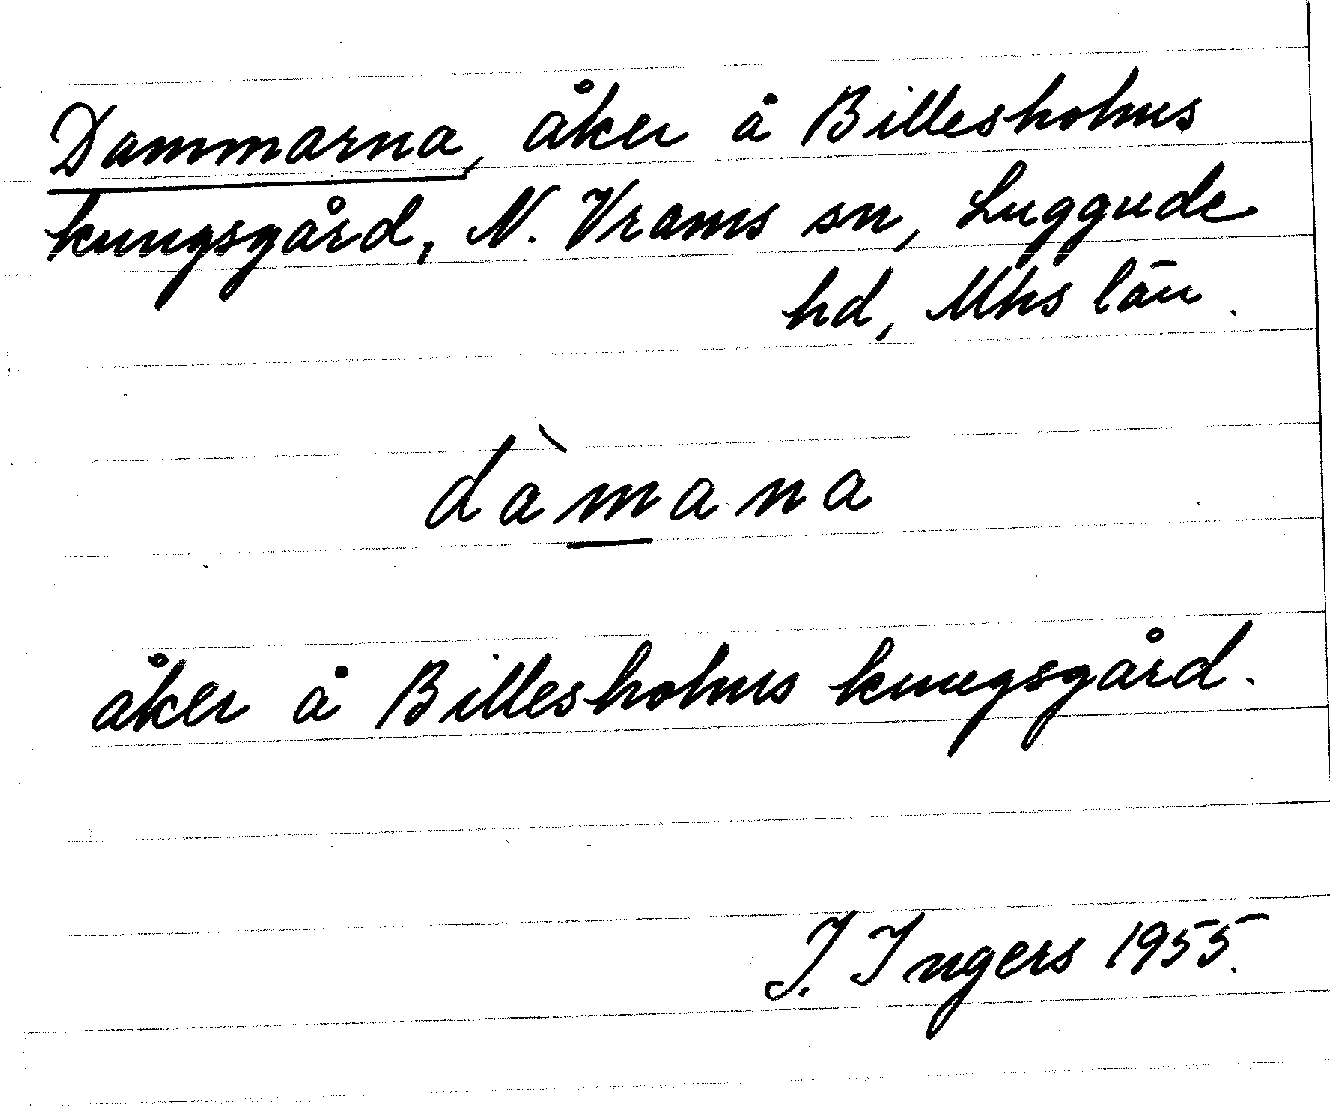 Dammarna, åker å Billesholms
kungsgård, N. Vrams sn, Luggude
hd, Mhs län.
dàmana
åker å Billesholms kungsgård.
I. Ingers 1955.